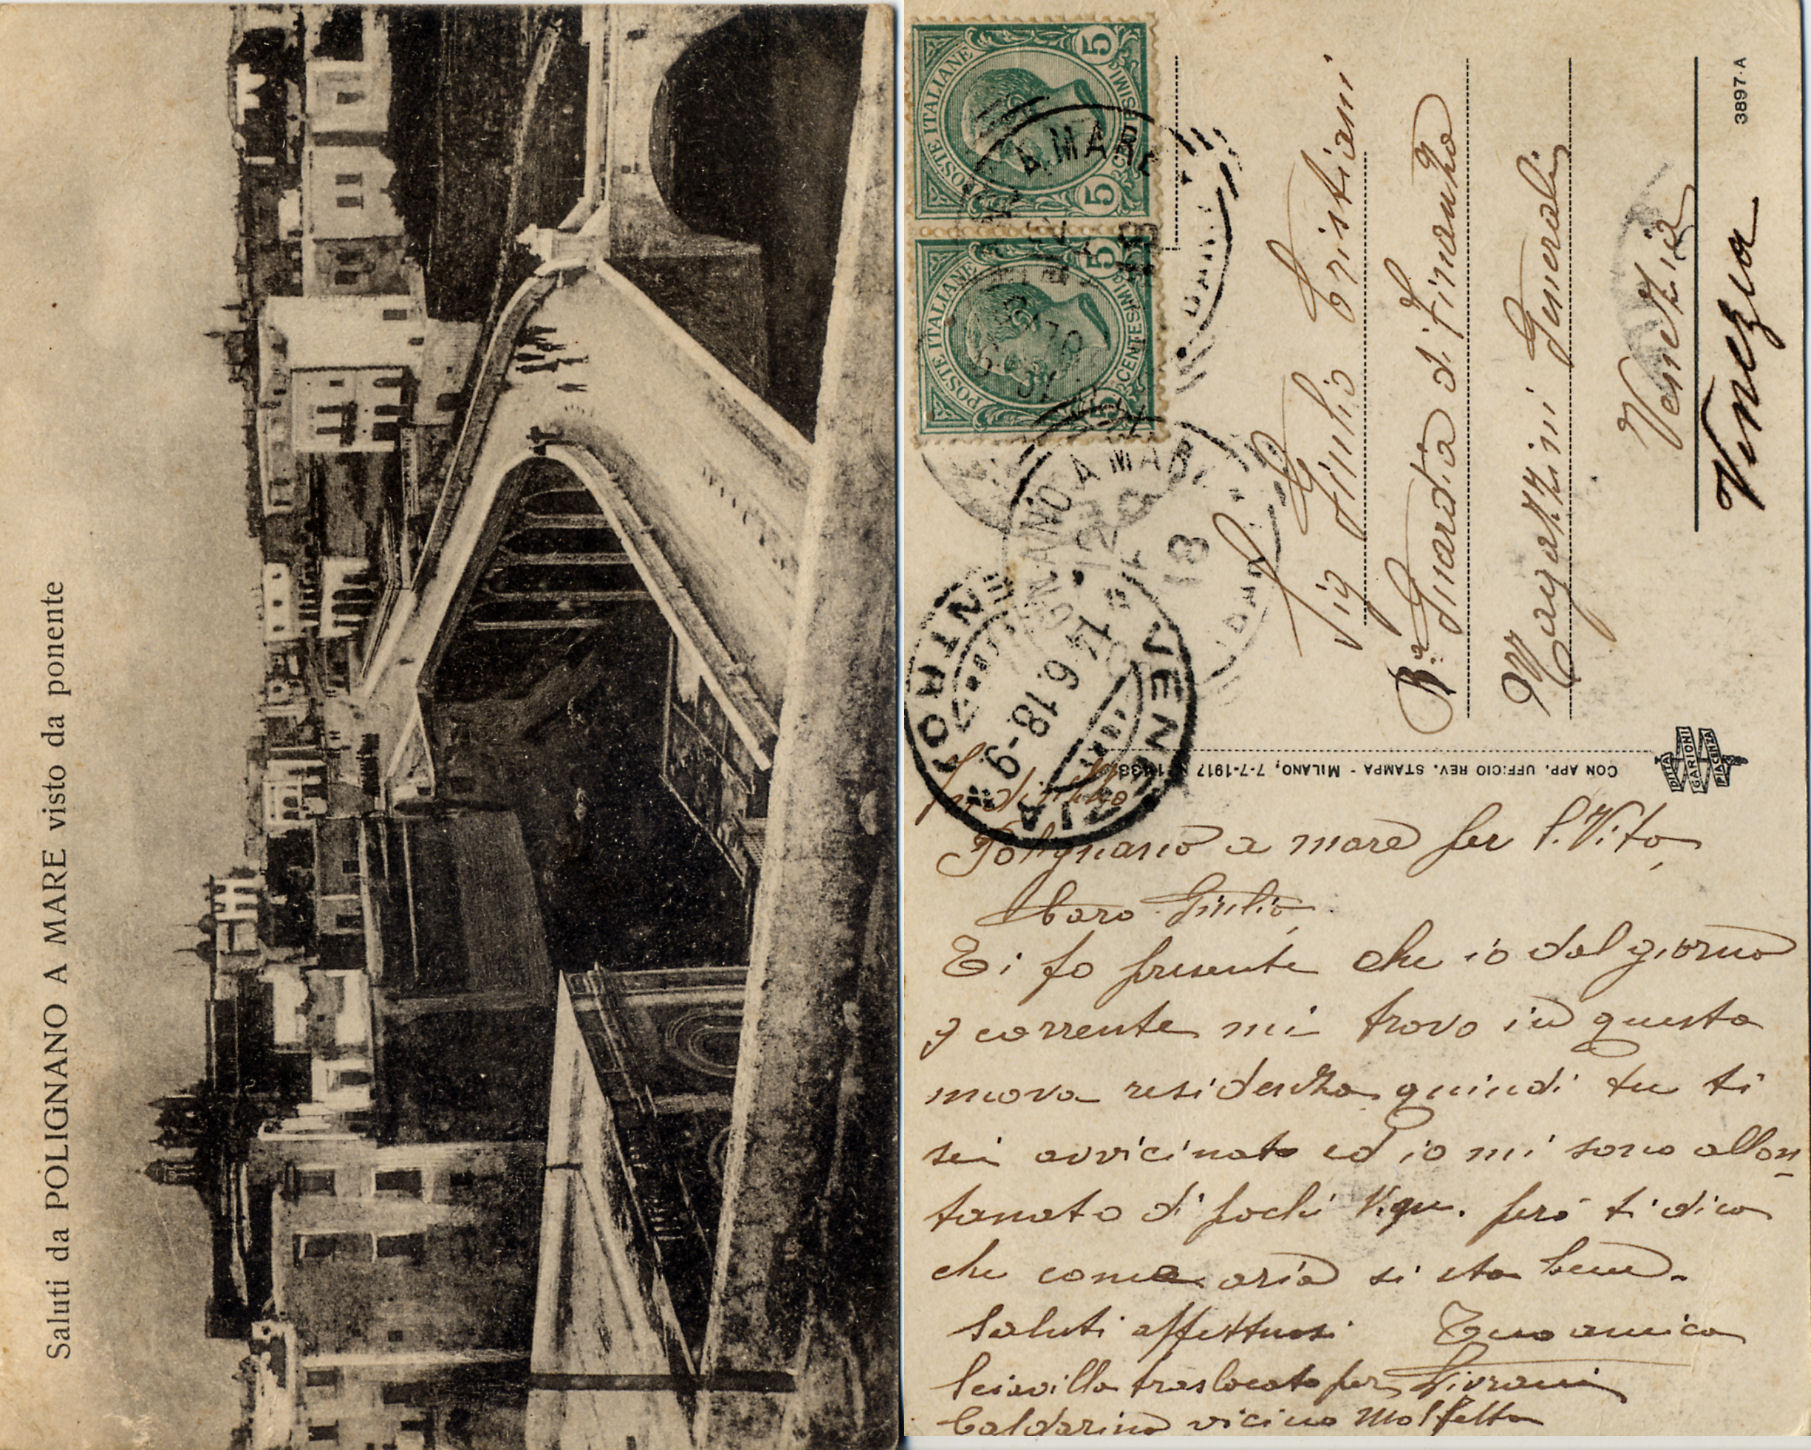 Saluti da POLIGNANO A MARE visto da ponente
POSTE ITALIANE
5 CENTESIMI 5
POSTE ITALIANE
5 CENTESIMI 5
POLIGNANO A MARE
VENEZIA CENTRO
14 6 18-9
3897-A
Sig Giulio Cristiani
Bª. Guardia di Finanza
Magazzini Generali
Venezia
Venezia
CON APP. UFFICIO REV. STAMPA - MILANO, 7-7-1917
DITTA
GARIONI
PIACENZA
Indirizzo
Polignano a mare per S. Vito
Caro Giulio,
Ti fo presente che io dal giorno
9 corrente mi trovo in questa
nuova residenza quindi tu ti
sei avvicinato ed io mi sono allon-
tanato di pochi però ti dico
che come aria si sta bene.
Saluti affettuosi Tuo amico
Sciavilla traslocato per
Caldarino vicino Molfetta